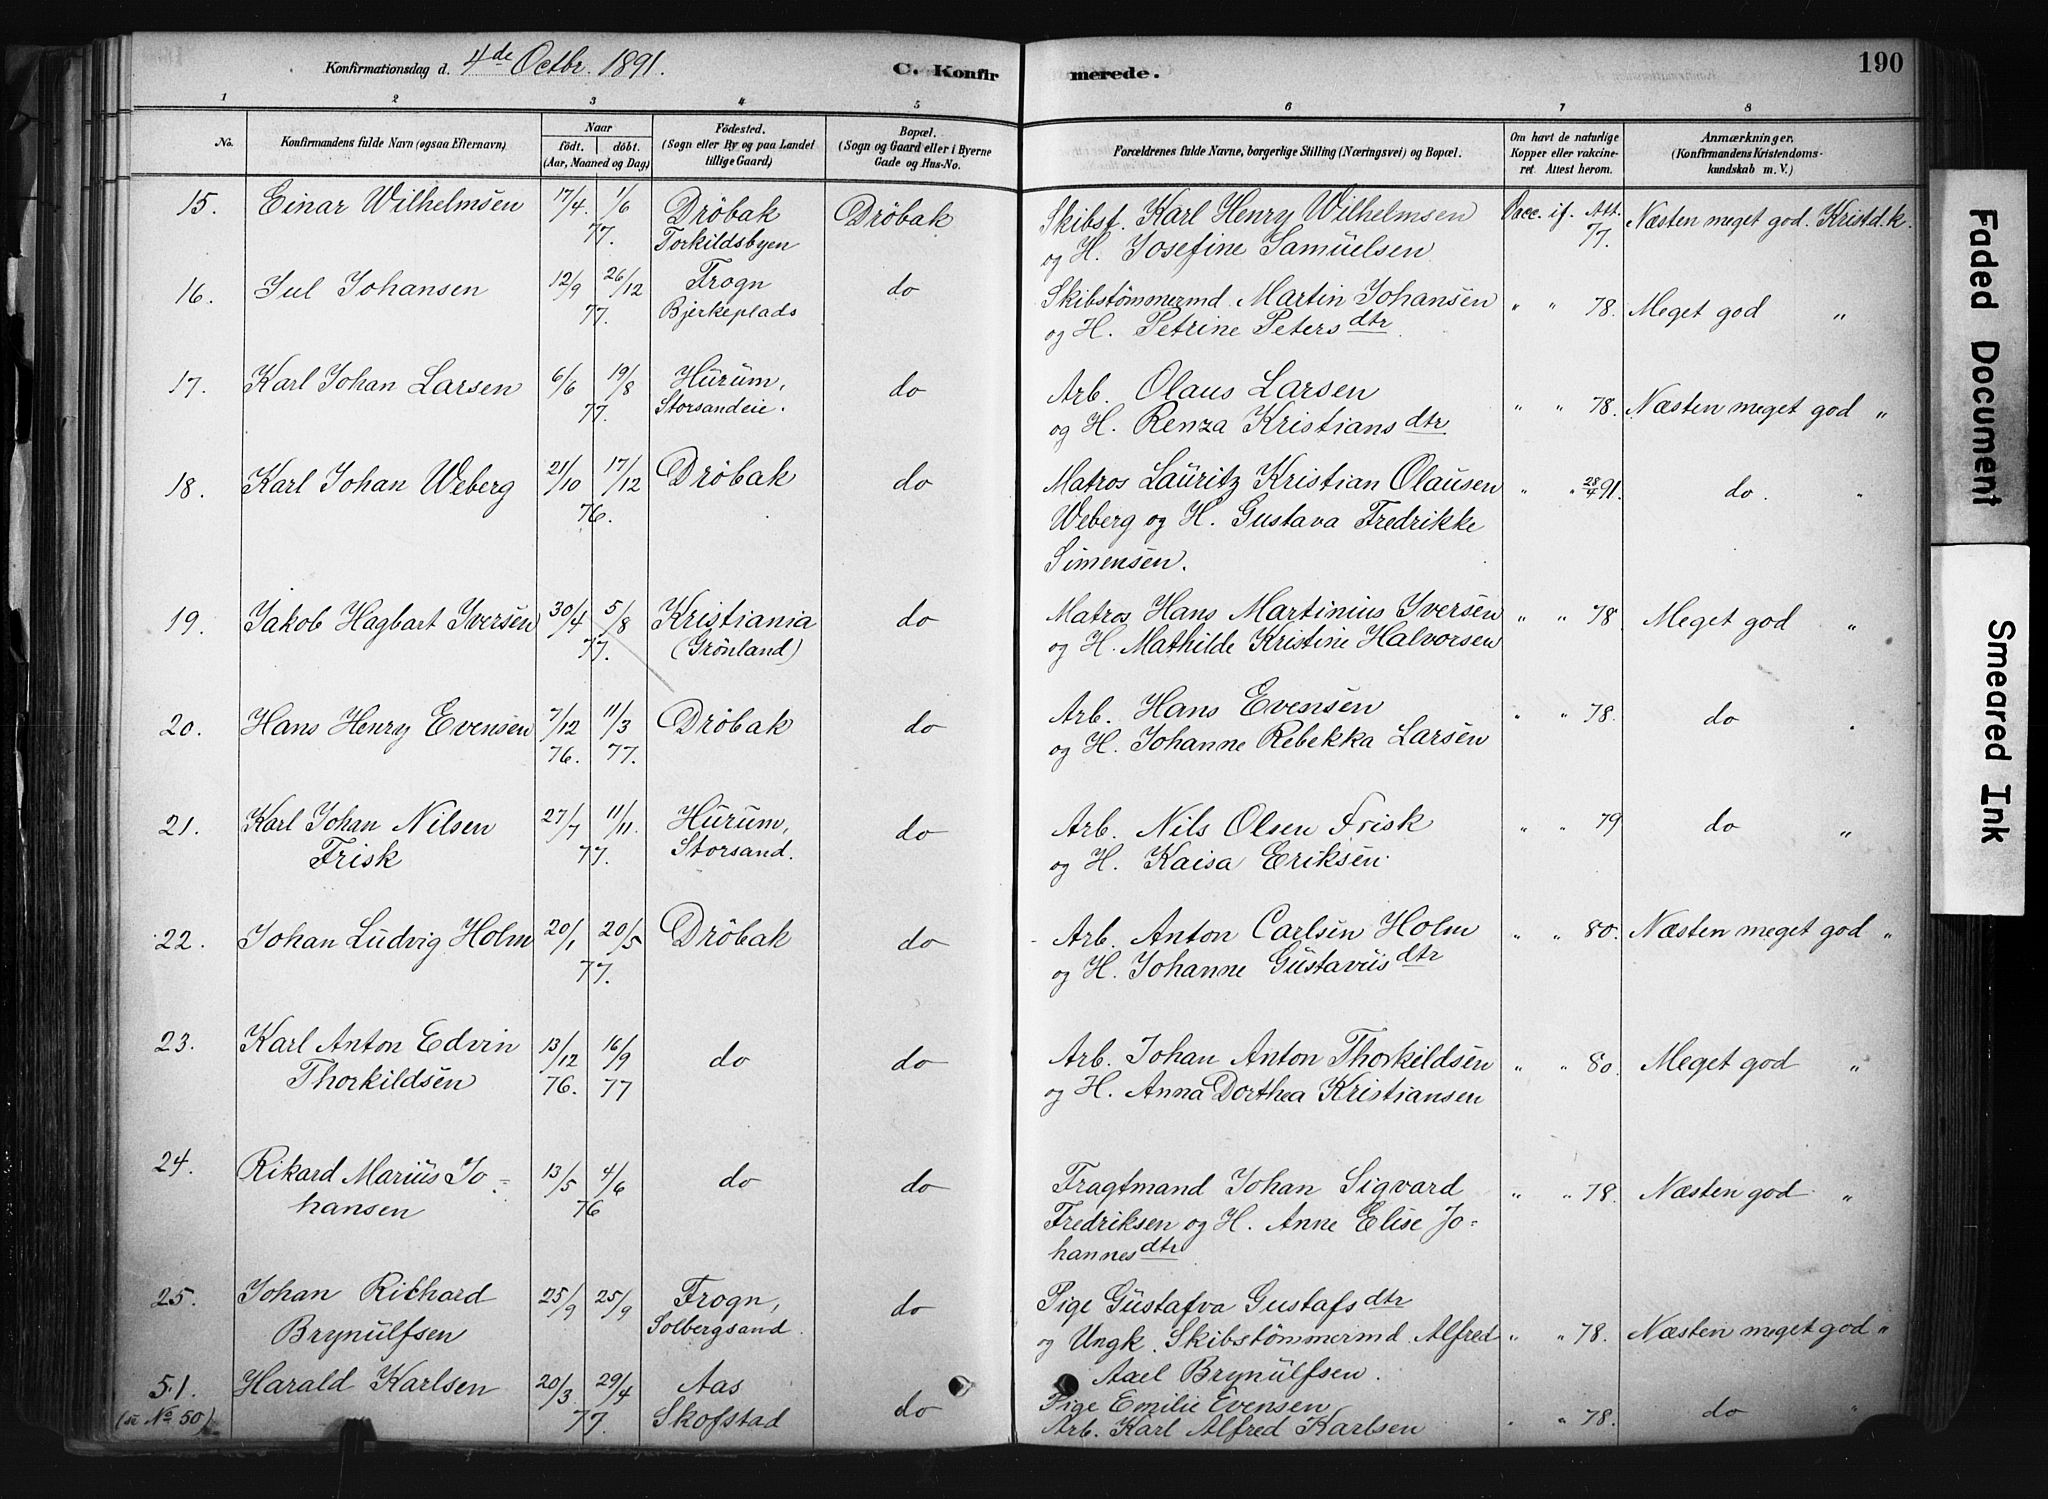 Konfirmationsdag d. 4de Octbr. 1891.
C. Konfirmerede.
190
1 2 3 4 5 6 7 8
No.
Konfirmandens fulde Navn (ogsaa Efternavn)
Naar
födt. döbt.
(Aar, Maaned og Dag)
Födested.
(Sogn eller By og paa Landet
tillige Gaard)
Bopæl.
(Sogn og Gaard eller i Byerne
Gade og Hus-No.
Forældrenes fulde Navne, borgerlige Stilling (Næringsvei) og Bopæl.
Om havt de naturlige
Kopper eller vakcine-
ret. Attest herom.
Anmærkninger.
(Konfirmandens Kristendoms-
kundskab m. V.)
15. Einar Wilhelmsen 17/4. 1/6 Dröbak Dröbak Skibsf. Karl Henry Wilhelmsen Vacc. if. Att. Næsten meget god. Kristd.k.
77. Torkildsbyen og H. Josefine Samuelsen 77.
16. Jul Johansen 12/9 26/12 Frogn do Skibstömmermd. Martin Johansen " " 78. Meget god "
77. Bjerkeplads og H. Petrine Petersdtr
17. Karl Johan Larsen 6/6 19/8 Hurum, do Arb. Olaus Larsen " " 78. Næsten meget god "
77. Storsandeie. og H. Renza Kristiansdtr
18. Karl Johan Weberg 21/10 17/12 Dröbak do Matros Lauritz Kristian Olausen " " 28/4 91. do. "
76. Weberg og H. Gustava Fredrikke
Simensen.
19. Jakob Hagbart Iversen 30/4 5/8 Kristiania do Matros Hans Martinius Iversen " " 78. Meget god "
77. (Grönland) og H. Mathilde Kristine Halvorsen
20. Hans Henry Evensen 7/12 11/3 Dröbak do Arb. Hans Evensen " " 78. do "
76. 77. og H. Johanne Rebekka Larsen
21. Karl Johan Nilsen 27/7 11/11. Hurum, do Arb. Nils Olsen Frisk " " 79 do "
Frisk 77. Storsand. og H. Kaisa Eriksen.
22. Johan Ludvig Holm 20/1 20/5 Dröbak do Arb. Anton Carlsen Holm " " 80. Næsten meget god "
77. og H. Johanne Gustavusdtr
23. Karl Anton Edvin 13/12 16/9 do do Arb. Johan Anton Thorkildsen " " 80. Meget god "
Thorkildsen 76. 77 og H. Anna Dorthea Kristiansen
24. Rikard Marius Jo= 13/5 4/6 do do Fragtmand Johan Sigvard " " 78. Næsten god "
hansen 76 Fredriksen og H. Anne Elise Jo=
hannesdtr
25. Johan Richard 25/9 25/9 Frogn, do Pige Gustafva Gustafsdtr
Brynulfsen Solbergsand. og Ungk. Skibstömmermd Alfred " " 78. Næsten meget god "
Axel Brynulfsen.
51. Harald Karlsen 20/3 29/4 Aas do Pige Emilie Evensen " " 78. do "
(se No 50) 77. Skofstad Arb. Karl Alfred Karlsen
Faded Document
Smeared Ink